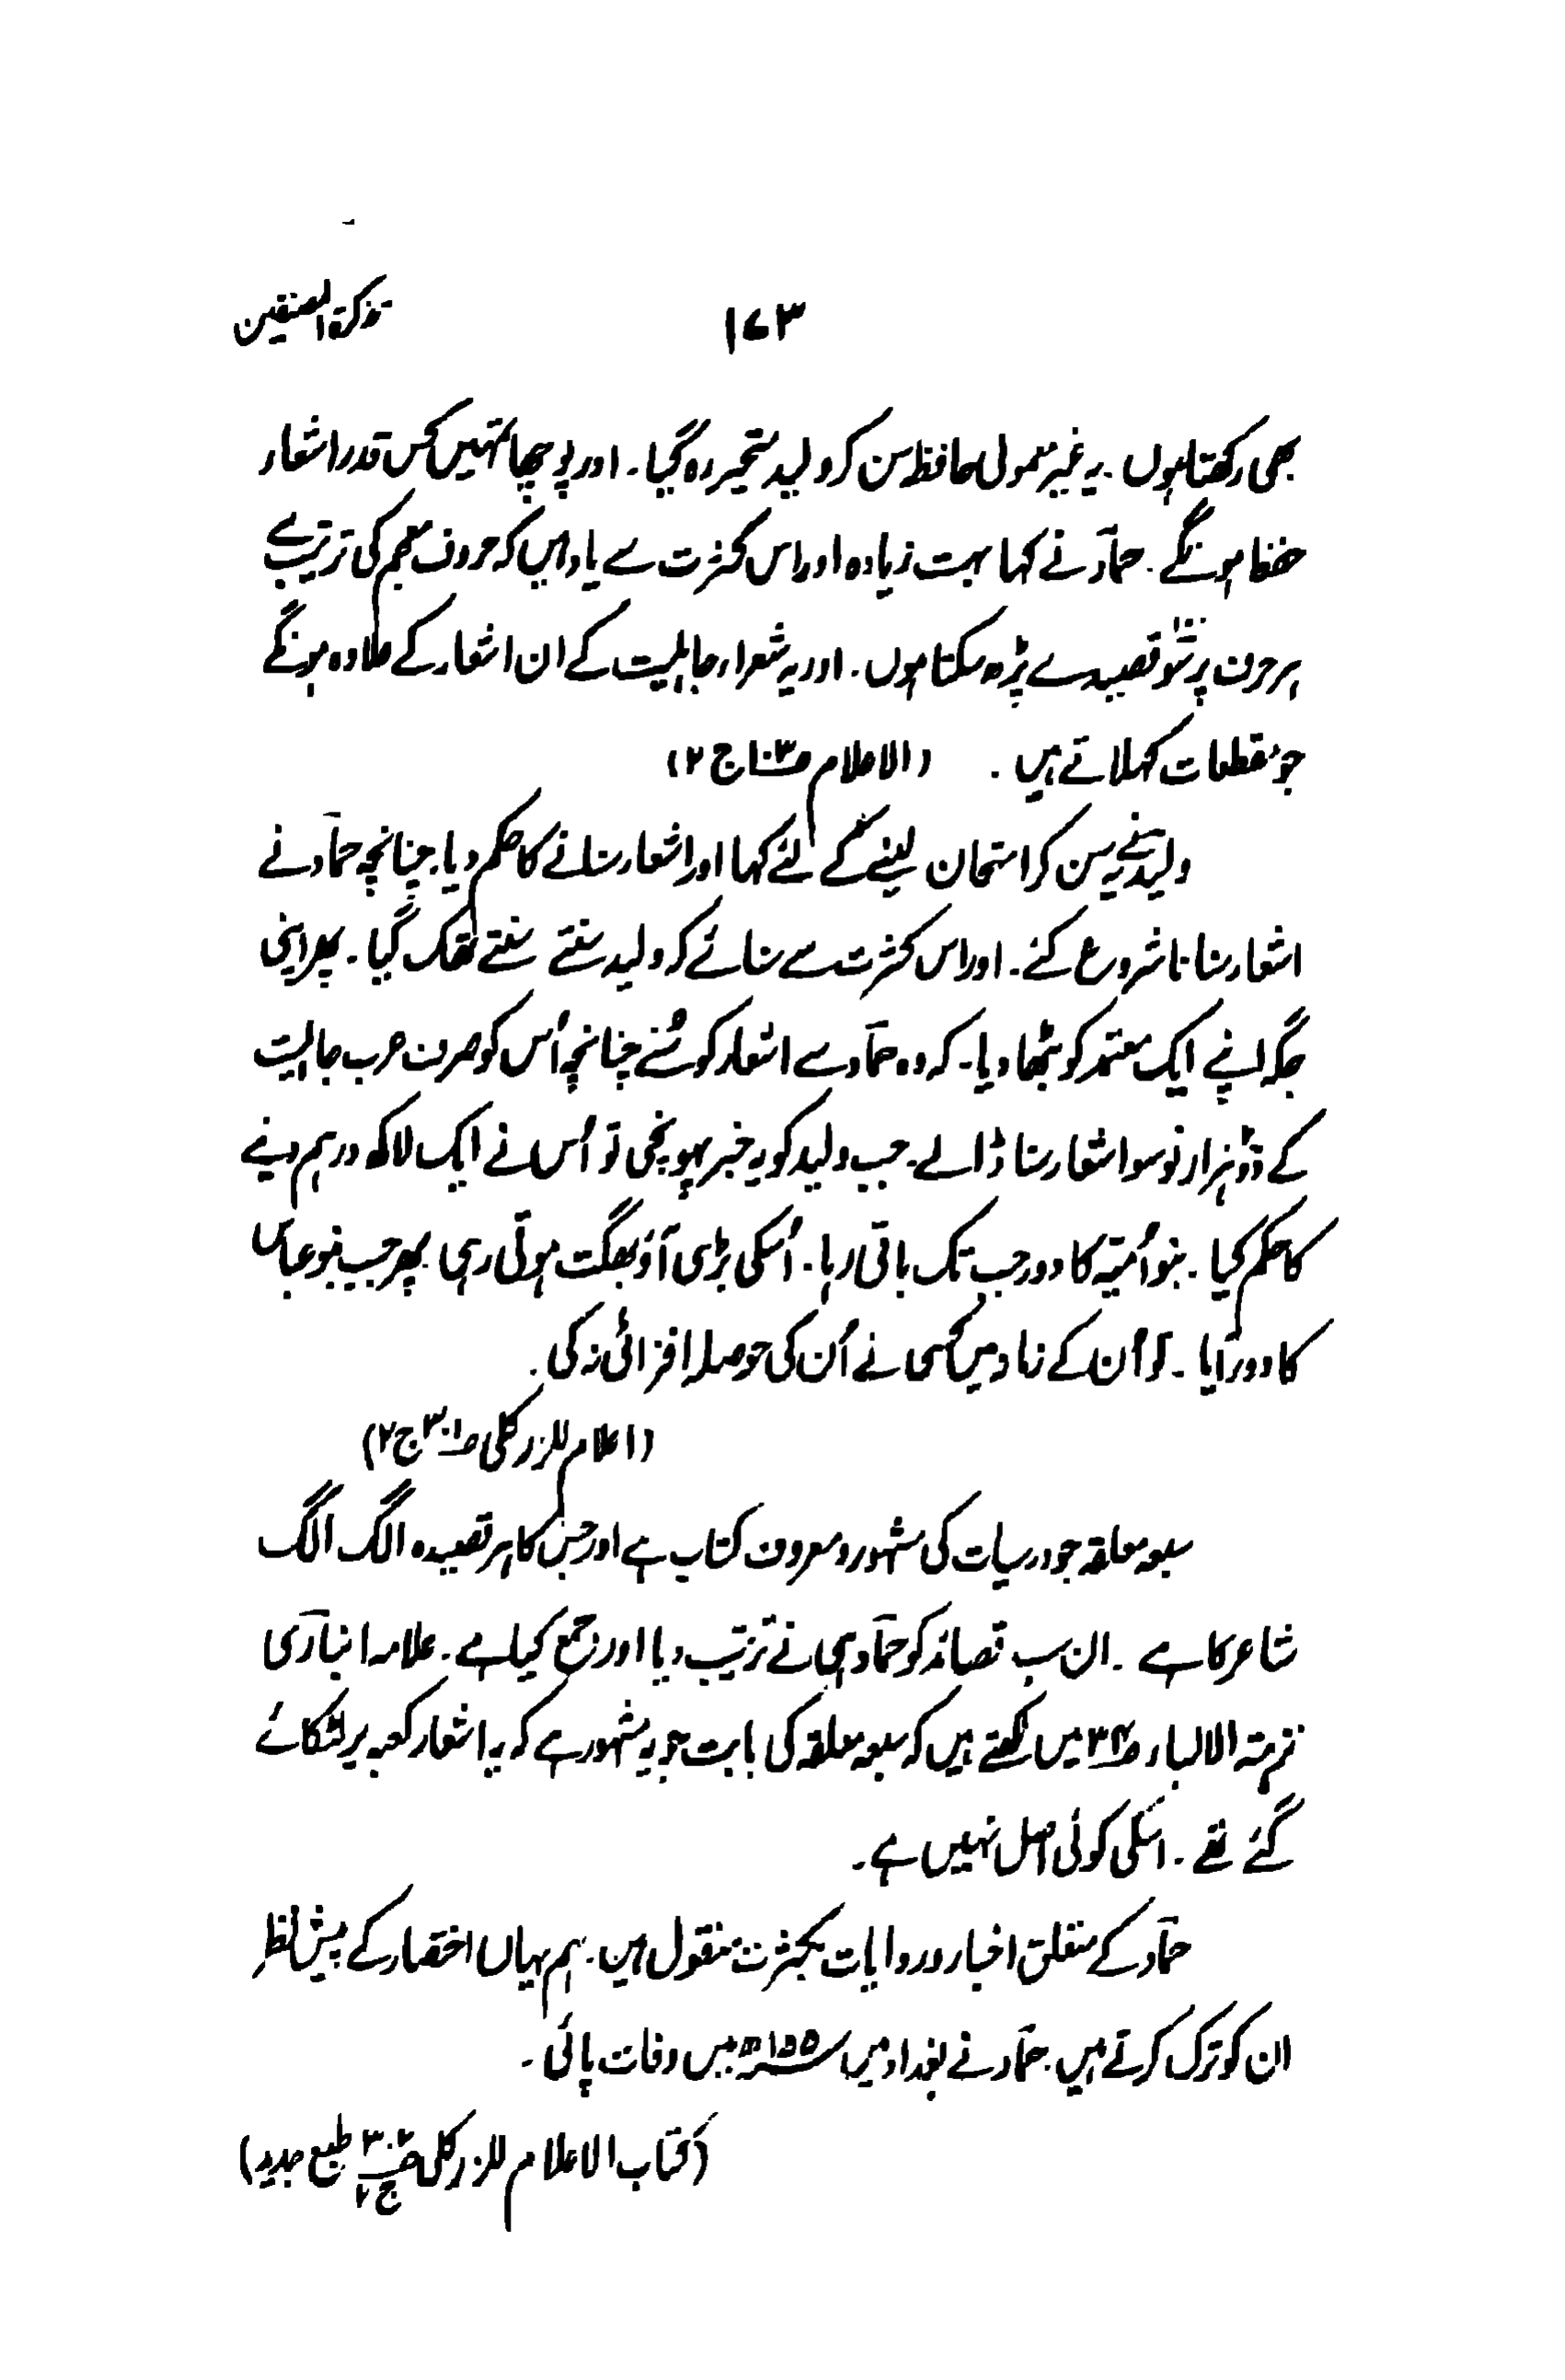 تذکرۃ المصنفین
۱۷۳
بھی رکھتا ہوں۔ یہ غیر معمولی حافظہ سن کر ولید متحیر رہ گیا۔ اور پوچھا تمہیں کس قدر اشعار
حفظ ہونگے۔ حمّاد نے کہا بہت زیادہ اور اس کثرت سے یاد ہیں کہ حروف معجم کی ترتیب سے
ہر حرف پر سَو قصیدے پڑھ سکتا ہوں۔ اور یہ شعراء جاہلیت کے ان اشعار کے علاوہ ہونگے
جو مقطعات کہلاتے ہیں۔ (الاعلام ص۳۰۱ ج ۲)
ولید نے یہ سن کر امتحان لینے کے لئے کہا اور اشعار سنانے کا حکم دیا۔ چنانچہ حمّاد نے
اشعار سنانا شروع کئے۔ اور اس کثرت سے سنائے کہ ولید سنتے سنتے تھک گیا۔ پھر اپنی
جگہ اپنے ایک معتمد کو بٹھا دیا۔ کہ وہ حمّاد سے اشعار کو سُنے چنانچہ اُس کو صرف عرب جاہلیت
کے دوہزار نو سو اشعار سنا ڈالے۔ جب ولید کو یہ خبر پہونچی تو اُس نے ایک لاکھ درہم دینے
کا حکم کیا۔ بنو اُمیّہ کا دور جب تک باقی رہا۔ اُسکی بڑی آؤ بھگت ہوتی رہی۔ پھر جب بنو عباس
کا دور آیا۔ تو اُن کے زمانہ میں کسی نے اُن کی حوصلہ افزائی نہ کی۔
(اعلام للزرکلی ص۳۰۱ ج۲)
سبعہ معلقہ جو درسیات کی مشہور و معروف کتاب ہے اور جس کا ہر قصیدہ الگ الگ
شاعر کا ہے۔ ان سب قصائد کو حمّاد ہی نے ترتیب دیا اور جمع کیا ہے۔ علامہ انباری
نزہتہ الالباء ص۳۴ میں لکھتے ہیں کہ سبعہ معلقہ کی بابت جو یہ مشہور ہے کہ یہ اشعار کعبہ پر لٹکائے
گئے تھے۔ اسکی کوئی اصل نہیں ہے۔
حمّاد کے متعلق اخبار و روایات بکثرت منقول ہیں۔ ہم یہاں اختصار کے پیش نظر
ان کو ترک کرتے ہیں۔ حمّاد نے بغداد میں ۱۵۵ھ میں وفات پائی۔
(کتاب الاعلام للزرکلی ص۳۰۲ ج۲ طبع جدید)